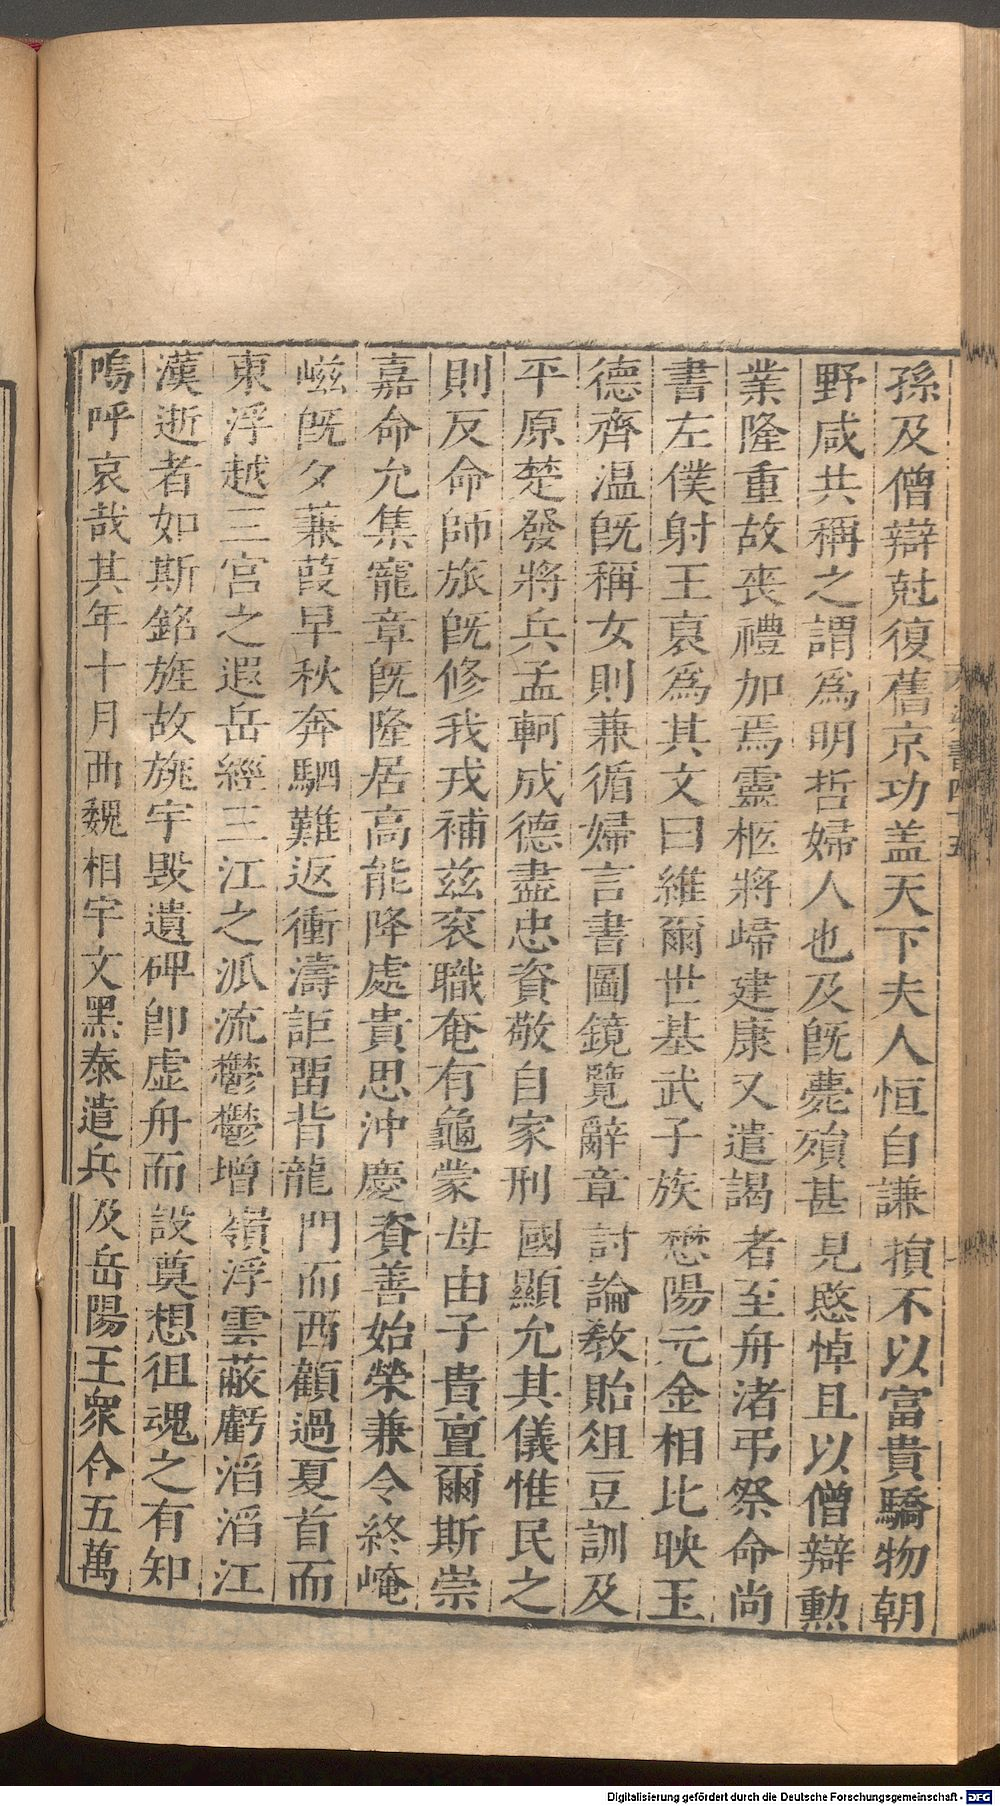 孫及僧辯尅復舊京功盖天下夫人恒自謙損不以富貴驕物朝
野咸共稱之謂爲明哲婦人也及旣薨殞甚見愍悼且以僧辯勲
業隆重故丧禮加焉靈柩將歸建康又遣謁者至舟渚弔祭命尚
書左僕射王裒爲其文曰維爾世基武子族懋陽元金相比映玉
德齊温旣稱女則兼循婦言書圖鏡覽辭章討論敎貽俎豆訓及
平原楚發將兵孟軻成德盡忠資敬自家刑國顯允其儀惟民之
則反命師旅旣修我戎補兹衮職奄有龜蒙母由子貴亶爾斯崇
嘉命允集寵章旣隆居高能降處貴思沖慶資善始榮兼令終崦
嵫旣夕蒹葭早秋奔駟難返衝濤詎畱背龍門而西顧過夏首而
東浮越三宫之遐岳經三江之派流鬱鬱增嶺浮雲蔽虧滔滔江
漢逝者如斯銘旌故旐宇毀遺碑卽虚舟而設奠想徂魂之有知
嗚呼哀哉其年十月西魏相宇文黑泰遣兵及岳陽王衆合五萬
Digitalisierung gefördert durch die Deutsche Forschungsgemeinschaft - DFG